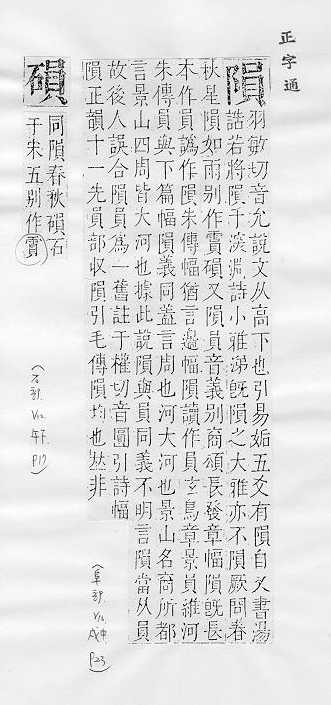 正字通
隕
羽敏切音允說文从高下也引易姤五爻有隕自天書湯
誥若將隕于深淵詩小雅涕旣隕之大雅亦不隕厥問春
秋星隕如雨别作霣磒又隕員音義别商頌長發章幅隕旣長
本作員譌作隕朱傳幅猶言邊幅隕讀作員玄鳥章景員維河
朱傳員與下篇幅隕義同蓋言周也河大河也景山名商所都
言景山四周皆大河也據此說隕與員同義不明言隕當从員
故後人誤合隕員爲一舊註于權切音圓引詩幅
隕正韻十一先員部收隕引毛傳隕均也𠀤非
(阜部 戌中 P23)
磒
同隕春秋磒石
于宋五别作霣
(石部 午下 P17)